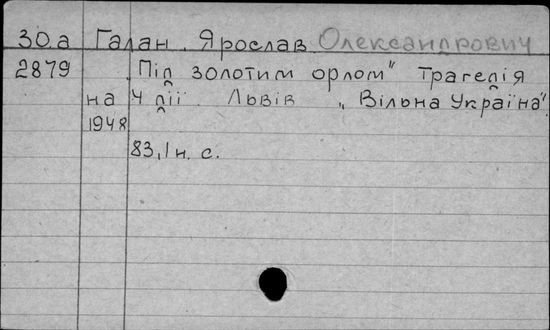 30.а Галан. Ярослав Олександрович
2879 „Під золотим орлом" Трагедія
на 4 дії. Львів „Вільна Україна".
1948
83, 1 н. с.